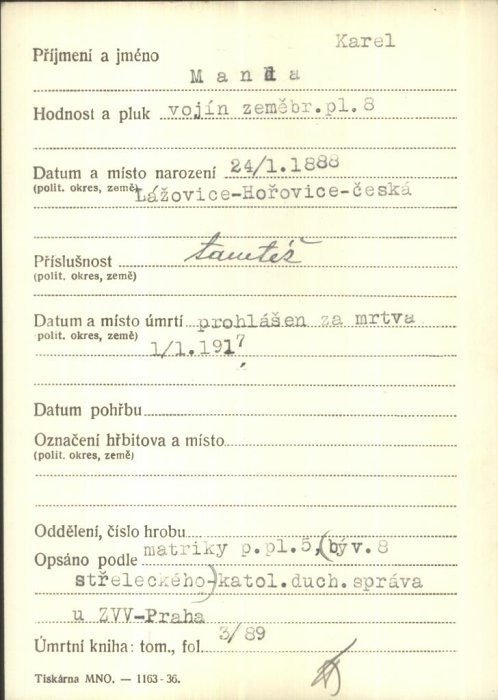 Karel
Příjmení a jméno
Manda
Hodnost a pluk vojín zeměbr.pl.8
Datum a místo narození 24/1.1888
(polit. okres, země) Lážovice-Hořovice-česká
Příslušnost tamtéž
(polit. okres, země)
Datum a místo úmrtí prohlášen za mrtva
polit. okres, země) 1/1.1917
Datum pohřbu
Označení hřbitova a místo
(polit. okres, země)
Oddělení, číslo hrobu
Opsáno podle matriky p.pl.5,(býv.8
střeleckého-)katol.duch.správa
u ZVV-Praha
Úmrtní kniha: tom., fol. 3/89
Tiskárna MNO. — 1163-36.